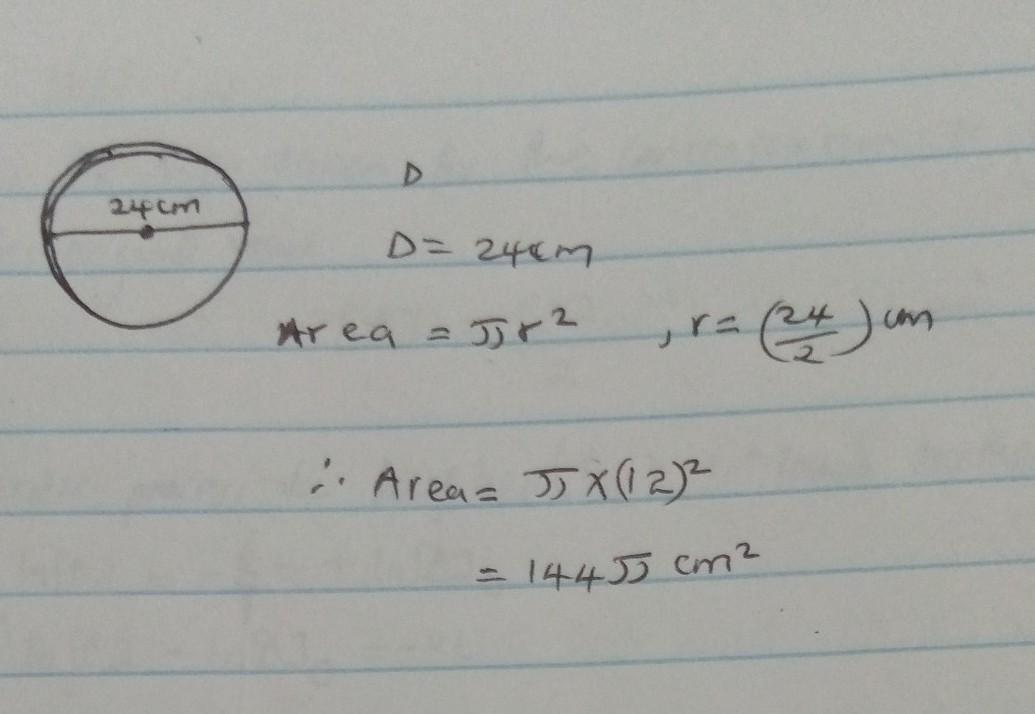 24cm
D
D = 24cm
Area = πr² , r = (24/2) cm
∴ Area = π×(12)²
= 144π cm²